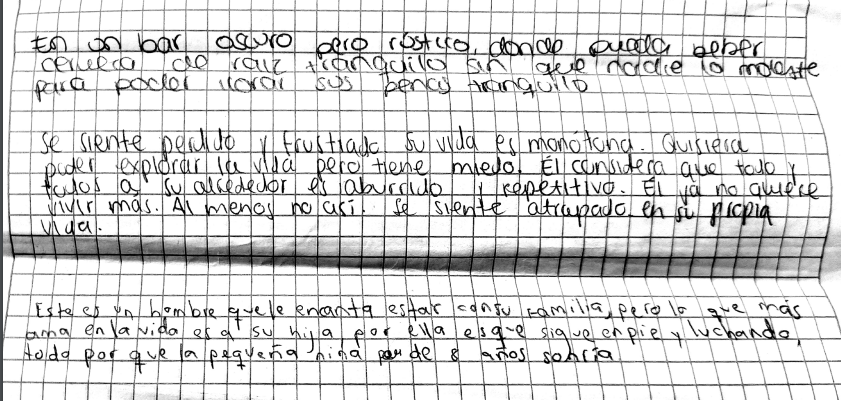 En un bar oscuro pero rústico, donde pueda beber
cerveza de raíz tranquilo sin que nadie lo moleste
para poder llorar sus penas tranquilo
Se siente perdido y frustrado. Su vida es monótona. Quisiera
poder explorar la vida pero tiene miedo. Él considera que todo y
todos a su alrededor es aburrido y repetitivo. Él ya no quiere
vivir más. Al menos no así. Se siente atrapado en su propia
vida.
Este es un hombre que le encanta estar con su familia, pero lo que más
ama en la vida es a su hija, por ella es que sigue en pie y luchando,
todo por que la pequeña niña de 8 años sonría